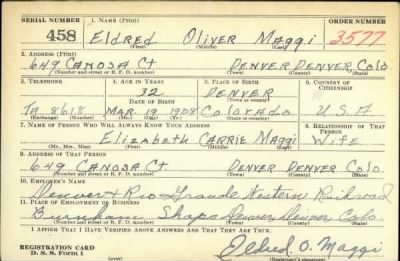 SERIAL NUMBER 1. NAME (Print) ORDER NUMBER
458 Eldred Oliver Maggi 3577
(First) (Middle) (Last)
2. ADDRESS (Print)
649 CANOSA Ct DENVER DENVER Colo
(Number and street or R. F. D. number) (Town) (County) (State)
3. TELEPHONE 4. AGE IN YEARS 5. PLACE OF BIRTH 6. COUNTRY OF CITIZENSHIP
32 DENVER
DATE OF BIRTH (Town or county)
TA 8618 MAR 19 1908 Colorado U.S.A
(Exchange) (Number) (Mo.) (Day) (Yr.) (State or country)
7. NAME OF PERSON WHO WILL ALWAYS KNOW YOUR ADDRESS 8. RELATIONSHIP OF THAT PERSON
Elizabeth CARRIE Maggi Wife
(Mr., Mrs., Miss) (First) (Middle) (Last)
9. ADDRESS OF THAT PERSON
649 CANOSA Ct DENVER DENVER Colo
(Number and street or R. F. D. number) (Town) (County) (State)
10. EMPLOYER'S NAME
Denver & Rio Grande Western Railroad
11. PLACE OF EMPLOYMENT OR BUSINESS
Burnham Shops Denver Denver Colo.
(Number and street or R. F. D. number) (Town) (County) (State)
I AFFIRM THAT I HAVE VERIFIED ABOVE ANSWERS AND THAT THEY ARE TRUE.
REGISTRATION CARD
D. S. S. Form 1 Eldred O. Maggi
(Registrant's signature)